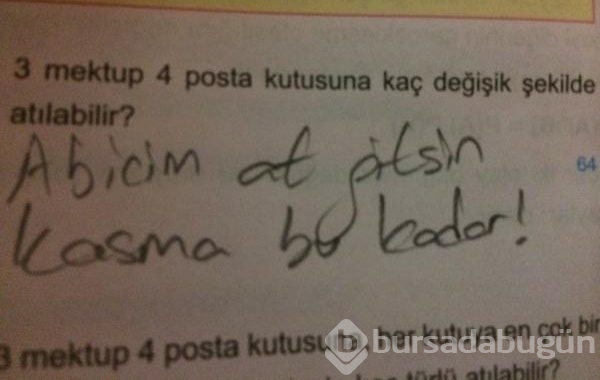 3 mektup 4 posta kutusuna kaç değişik şekilde
atılabilir?
Abicim at gitsin
64
kasma bu kadar!
3 mektup 4 posta kutusuna, her kutuya en çok bir
bursadabugün
türlü atılabilir?